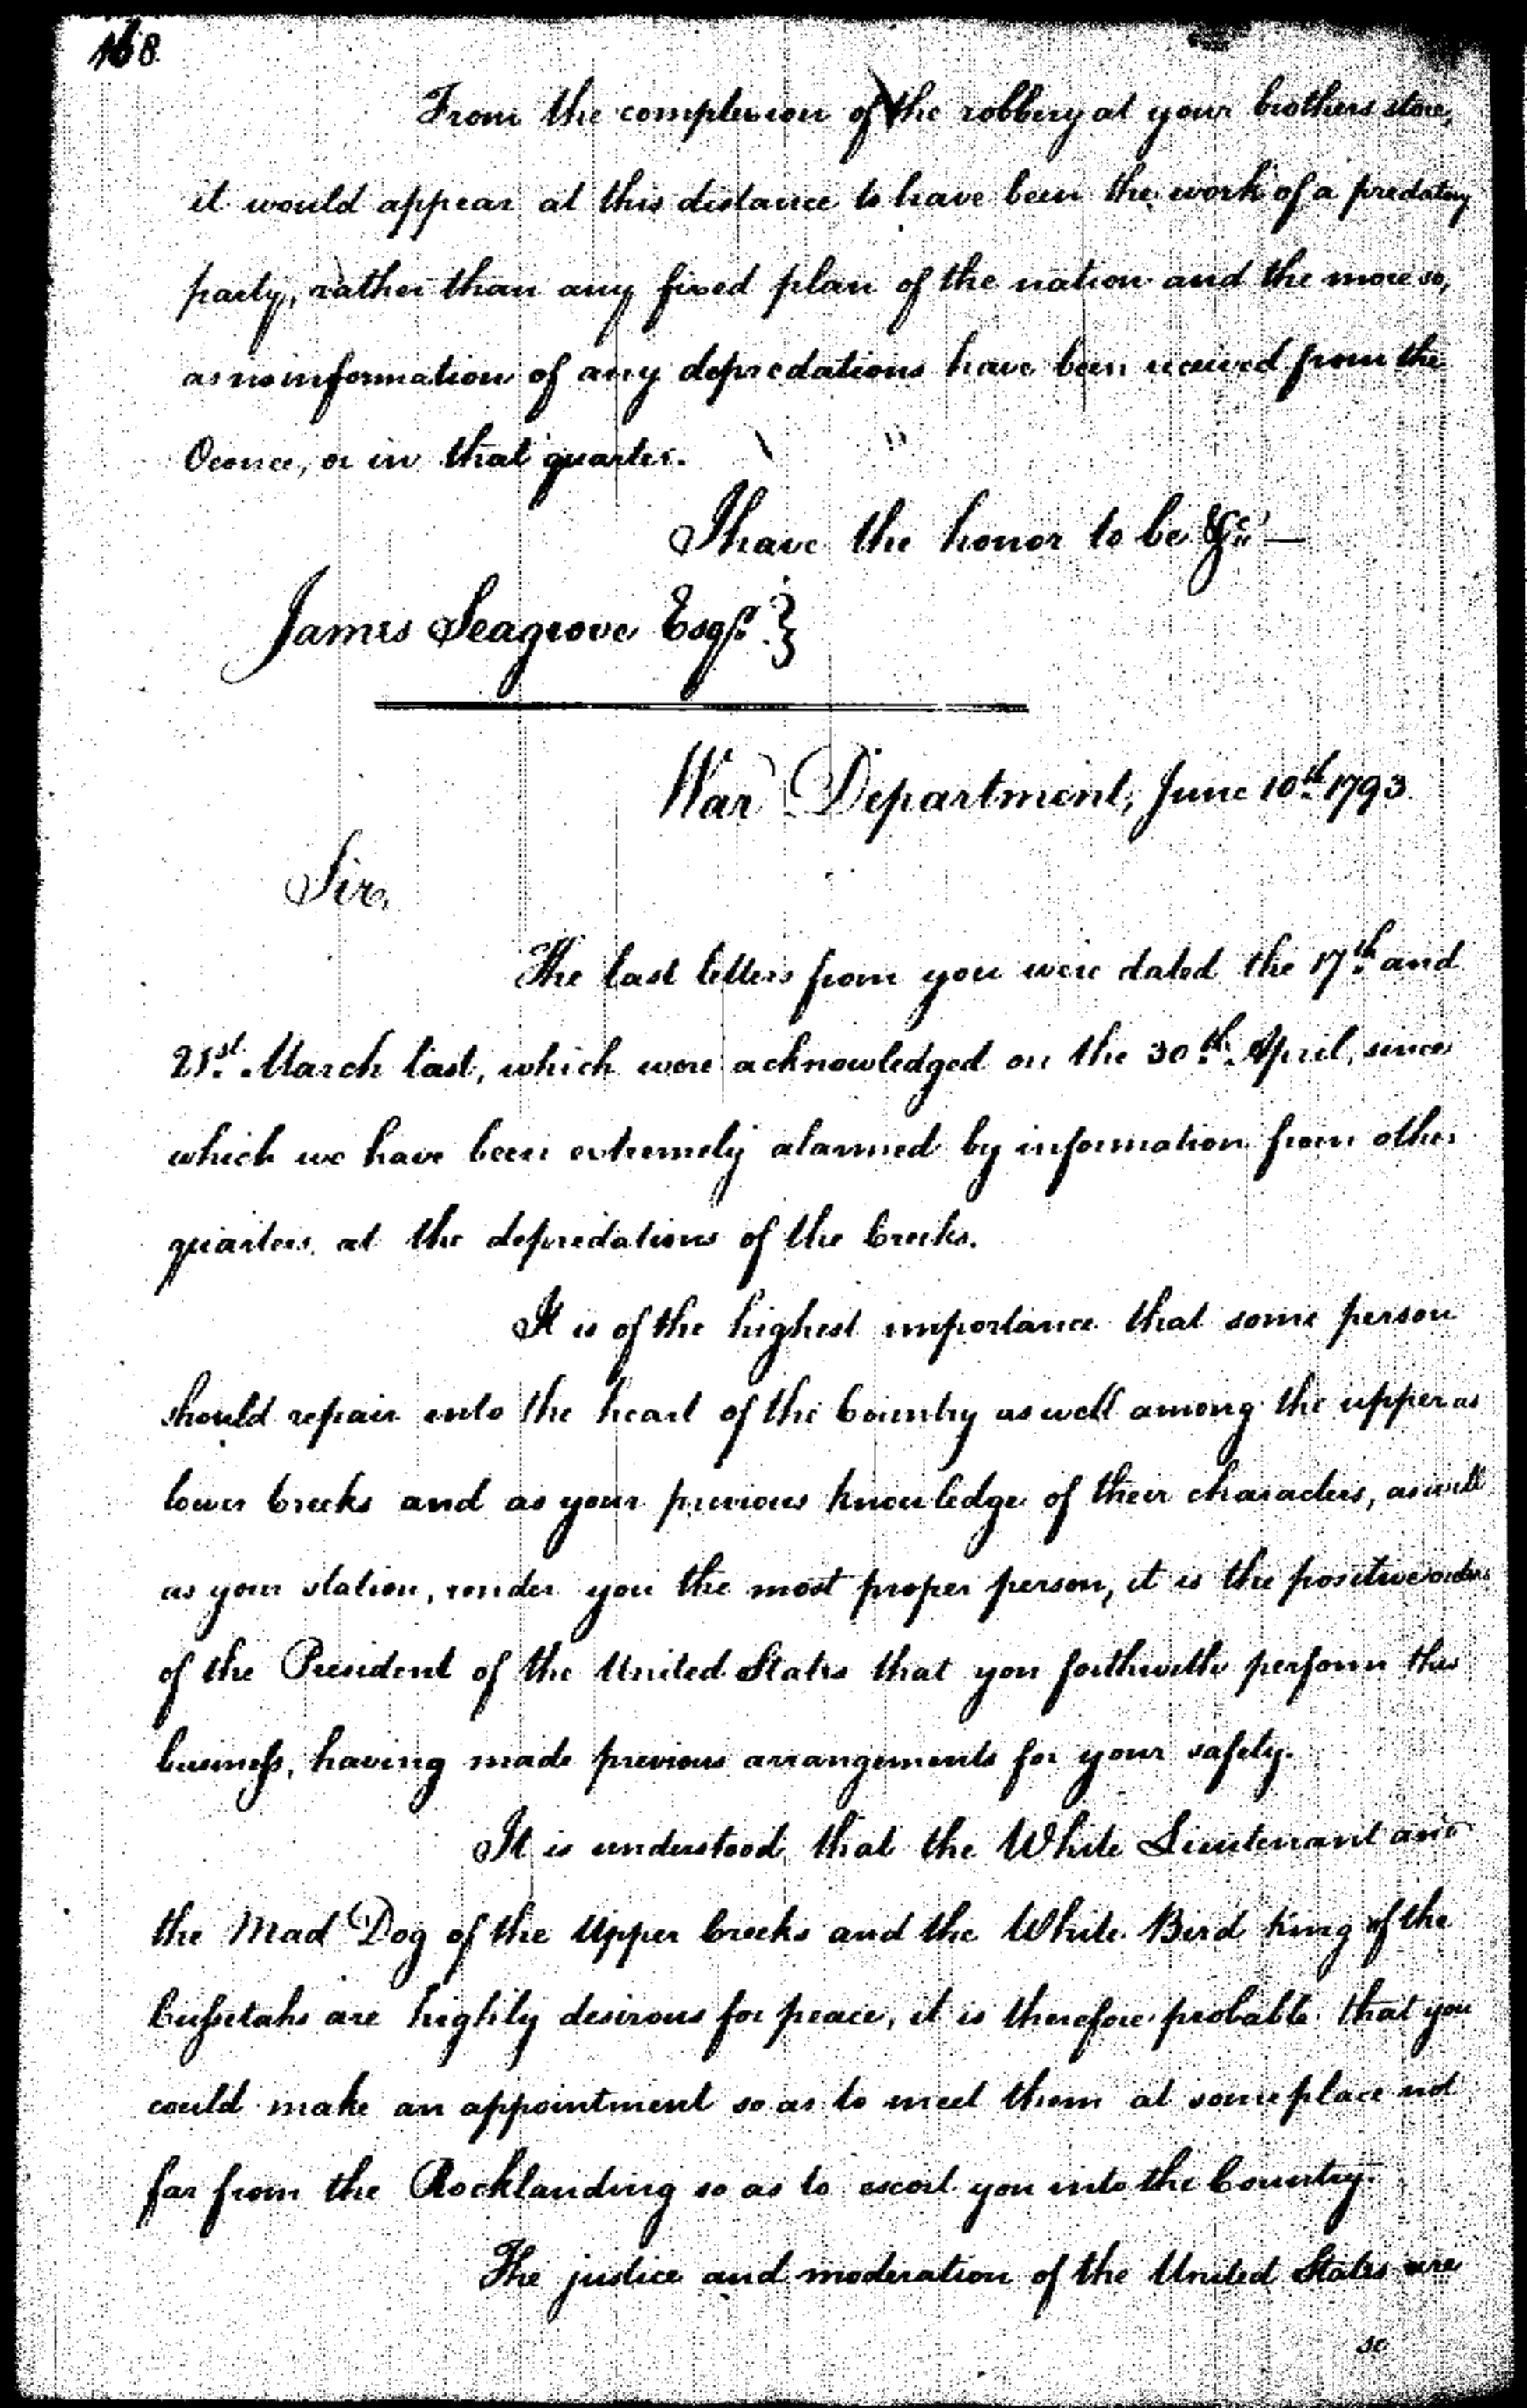 168
From the complexion of the robbery at your brothers store,
it would appear at this distance to have been the work of a predatory
party, rather than any fixed plan of the nation and the more so,
as no information of any depredations have been received from the
Oconee, or in that quarter.
I have the honor to be &c.—
James Seagrove Esqr. }
War Department, June 10th. 1793.
Sir,
The last letters from you were dated the 17th. and
21st. March last, which were acknowledged on the 30th. April, since
which we have been extremely alarmed by information from other
quarters, at the depredations of the Creeks.
It is of the highest importance that some person
should repair into the heart of the Country as well among the upper as
lower Creeks and as your previous knowledge of their characters, as well
as your station, render you the most proper person, it is the positive orders
of the President of the United States that you forthwith perform this
business, having made previous arrangements for your safety.
It is understood, that the White Lieutenant and
the Mad Dog of the Upper Creeks and the White Bird King of the
Cussetahs are highly desirous for peace, it is therefore probable that you
could make an appointment so as to meet them at some place not
far from the Rocklanding so as to escort you into the Country.
The justice and moderation of the United States are
so